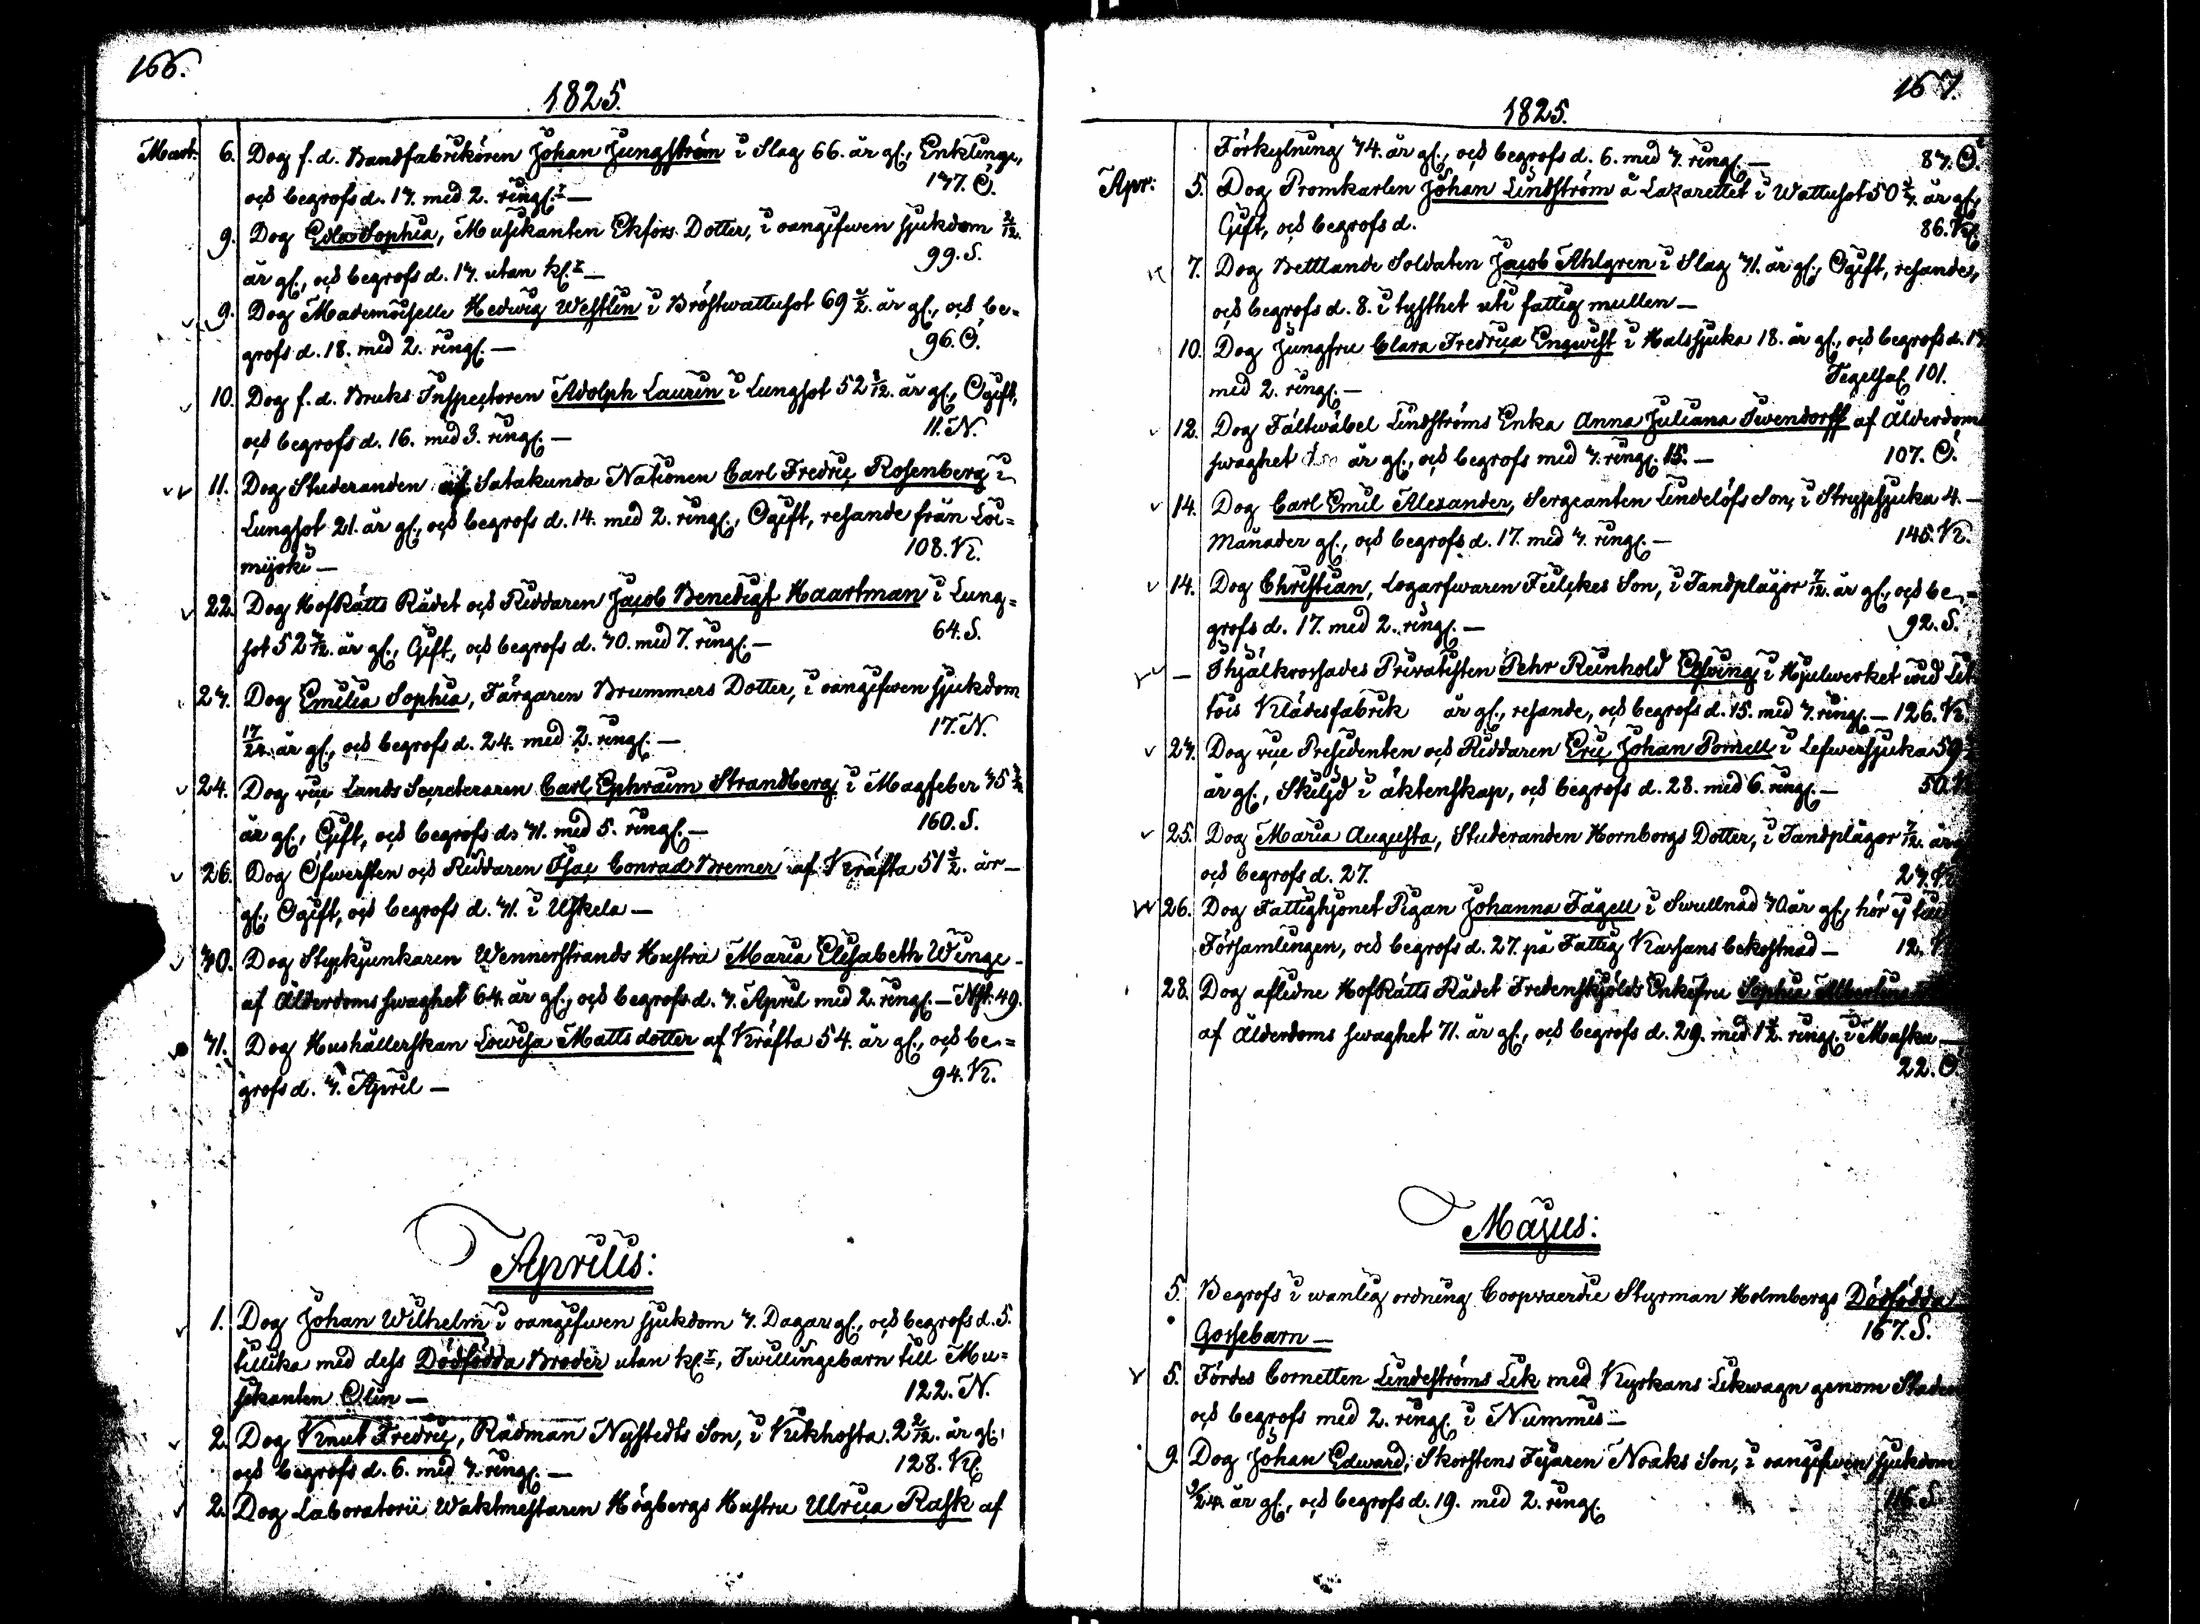 166.
1825.
Mart. 6. Dog f. d. Bandfabrikören Johan Ljungström i Slag 66. år gl., Enkling,
och begrofs d. 13. med 2. ringl.r — 137. Ö.
9. Dog Eda Sophia, Musikanten Ekfors Dotter, i oangifwen sjukdom 2/12.
år gl., och begrofs d. 13. utan kl.r — 99. S.
9. Dog Mademoiselle Hedwig Westlin i Bröstwattusot 69 1/2. år gl., och be=
grofs d. 18. med 2. ringl. — 96. Ö.
10. Dog f. d. Bruks Inspectoren Adolph Laurin i Lungsot 52 3/12. år gl., Ogift,
och begrofs d. 16. med 3. ringl. — 11. N.
11. Dog Studeranden af Satakunda Nationen Carl Fredric Rosenberg i
Lungsot 21. år gl., och begrofs d. 14. med 2. ringl., Ogift, resande från Loi=
mijoki — 108. K.
22. Dog HofRätts Rådet och Riddaren Jacob Benedict Haartman i Lung=
sot 52 3/12. år gl., Gift, och begrofs d. 30. med 7. ringl. — 64. S.
23. Dog Emilia Sophia, Färgaren Brummers Dotter, i oangifwen sjukdom
17/24. år gl., och begrofs d. 24. med 2. ringl. — 17. N.
24. Dog vice Lands Secreteraren Carl Ephraim Strandberg i Magfeber 35
år gl., Gift, och begrofs d. 31. med 5. ringl. — 160. S.
26. Dog Öfwersten och Riddaren Isac Conrad Bremer af Kräfta 51 1/2. år —
gl., Ogift, och begrofs d. 31. i Uskela —
30. Dog Styckjunkaren Wennerstrands Hustru Maria Elisabeth Winge —
af Ålderdoms swaghet 64. år gl., och begrofs d. 3. April med 2. ringl. — Nst. 49.
31. Dog Hushållerskan Lowisa Matts dotter af Kräfta 54. år gl., och be=
grofs d. 3. April — 94. K.
Aprilis:
1. Dog Johan Wilhelm i oangifwen sjukdom 3. Dagar gl., och begrofs d. 5.
tillika med dess Dödfödda Broder utan kl.r, Twillingebarn till Mu=
sikanten Olin — 122. N.
2. Dog Knut Fredric, Rådman Nystedts Son, i Kikhosta 2 2/12. år gl.,
och begrofs d. 6. med 3. ringl. — 128. Kl.
2. Dog Laboratorii Waktmestaren Högbergs Hustru Ulrica Rask af
167.
1825.
Förkylning 34. år gl., och begrofs d. 6. med 3. ringl. — 83. Ö.
Apr: 5. Dog Promkarlen Johan Lindström å Lazarettet i Wattusot 50 år gl.,
Gift, och begrofs d. 86. Kl.
7. Dog Bettlande Soldaten Jacob Ahlgren i Slag 71. år gl., Ogift, resande,
och begrofs d. 8. i tysthet uti fattig mullen —
10. Dog Jungfru Clara Fredrica Engwist i Halssjuka 18. år gl., och begrofs d. 13
med 2. ringl. — Tegelsal 101.
12. Dog Fältwäbel Lindströms Enka Anna Juliana Swendorff af Ålderdoms
swaghet år gl., och begrofs med 3. ringl. 15. — 107. Ö.
14. Dog Carl Emil Alexander, Sergeanten Lindelöfs Son, i Strypsjuka 4. —
Månader gl., och begrofs d. 17. med 3. ringl. — 145. K.
14. Dog Christian, Logarfwaren Fulckes Son, i Tandplågor 7/12. år gl., och be=
grofs d. 17. med 2. ringl. — 92. S.
— Ihjälkrossades Privatisten Pehr Reinhold Elfving i Hjulwerket wid Lit
tois Klädesfabrik år gl., resande, och begrofs d. 15. med 3. ringl. — 126. K.
23. Dog vice Presidenten och Riddaren Eric Johan Ponzell i Lefwersjuka 59
år gl., Skiljd i äktenskap, och begrofs d. 28. med 6. ringl. — 50.
25. Dog Maria Augusta, Studeranden Hornborgs Dotter, i Tandplågor 7/12. år g
och begrofs d. 27. 23.
26. Dog Fattighjonet Pigan Johanna Fagell i Swullnad 30 år gl., hör ej till
Församlingen, och begrofs d. 27. på Fattig Kassans bekostnad — 12.
28. Dog aflidne HofRätts Rådet Fredenskjölds Enkefru Sophia Albertina
af Ålderdoms swaghet 71. år gl., och begrofs d. 29. med 1 1/2. ringl. i Masku —
22. Ö.
Majus:
5. Begrofs i wanlig ordning Coopvaerdie Styrman Holmbergs Dödfödda
Gossebarn — 167. S.
5. Fördes Cornetten Lindeströms Lik med Kyrkans Likwagn genom Staden
och begrofs med 2. ringl. i Nummis —
9. Dog Johan Edward, Skorstens Fejaren Noaks Son, i oangifwen sjukdom
år gl., och begrofs d. 19. med 2. ringl. 116. S.